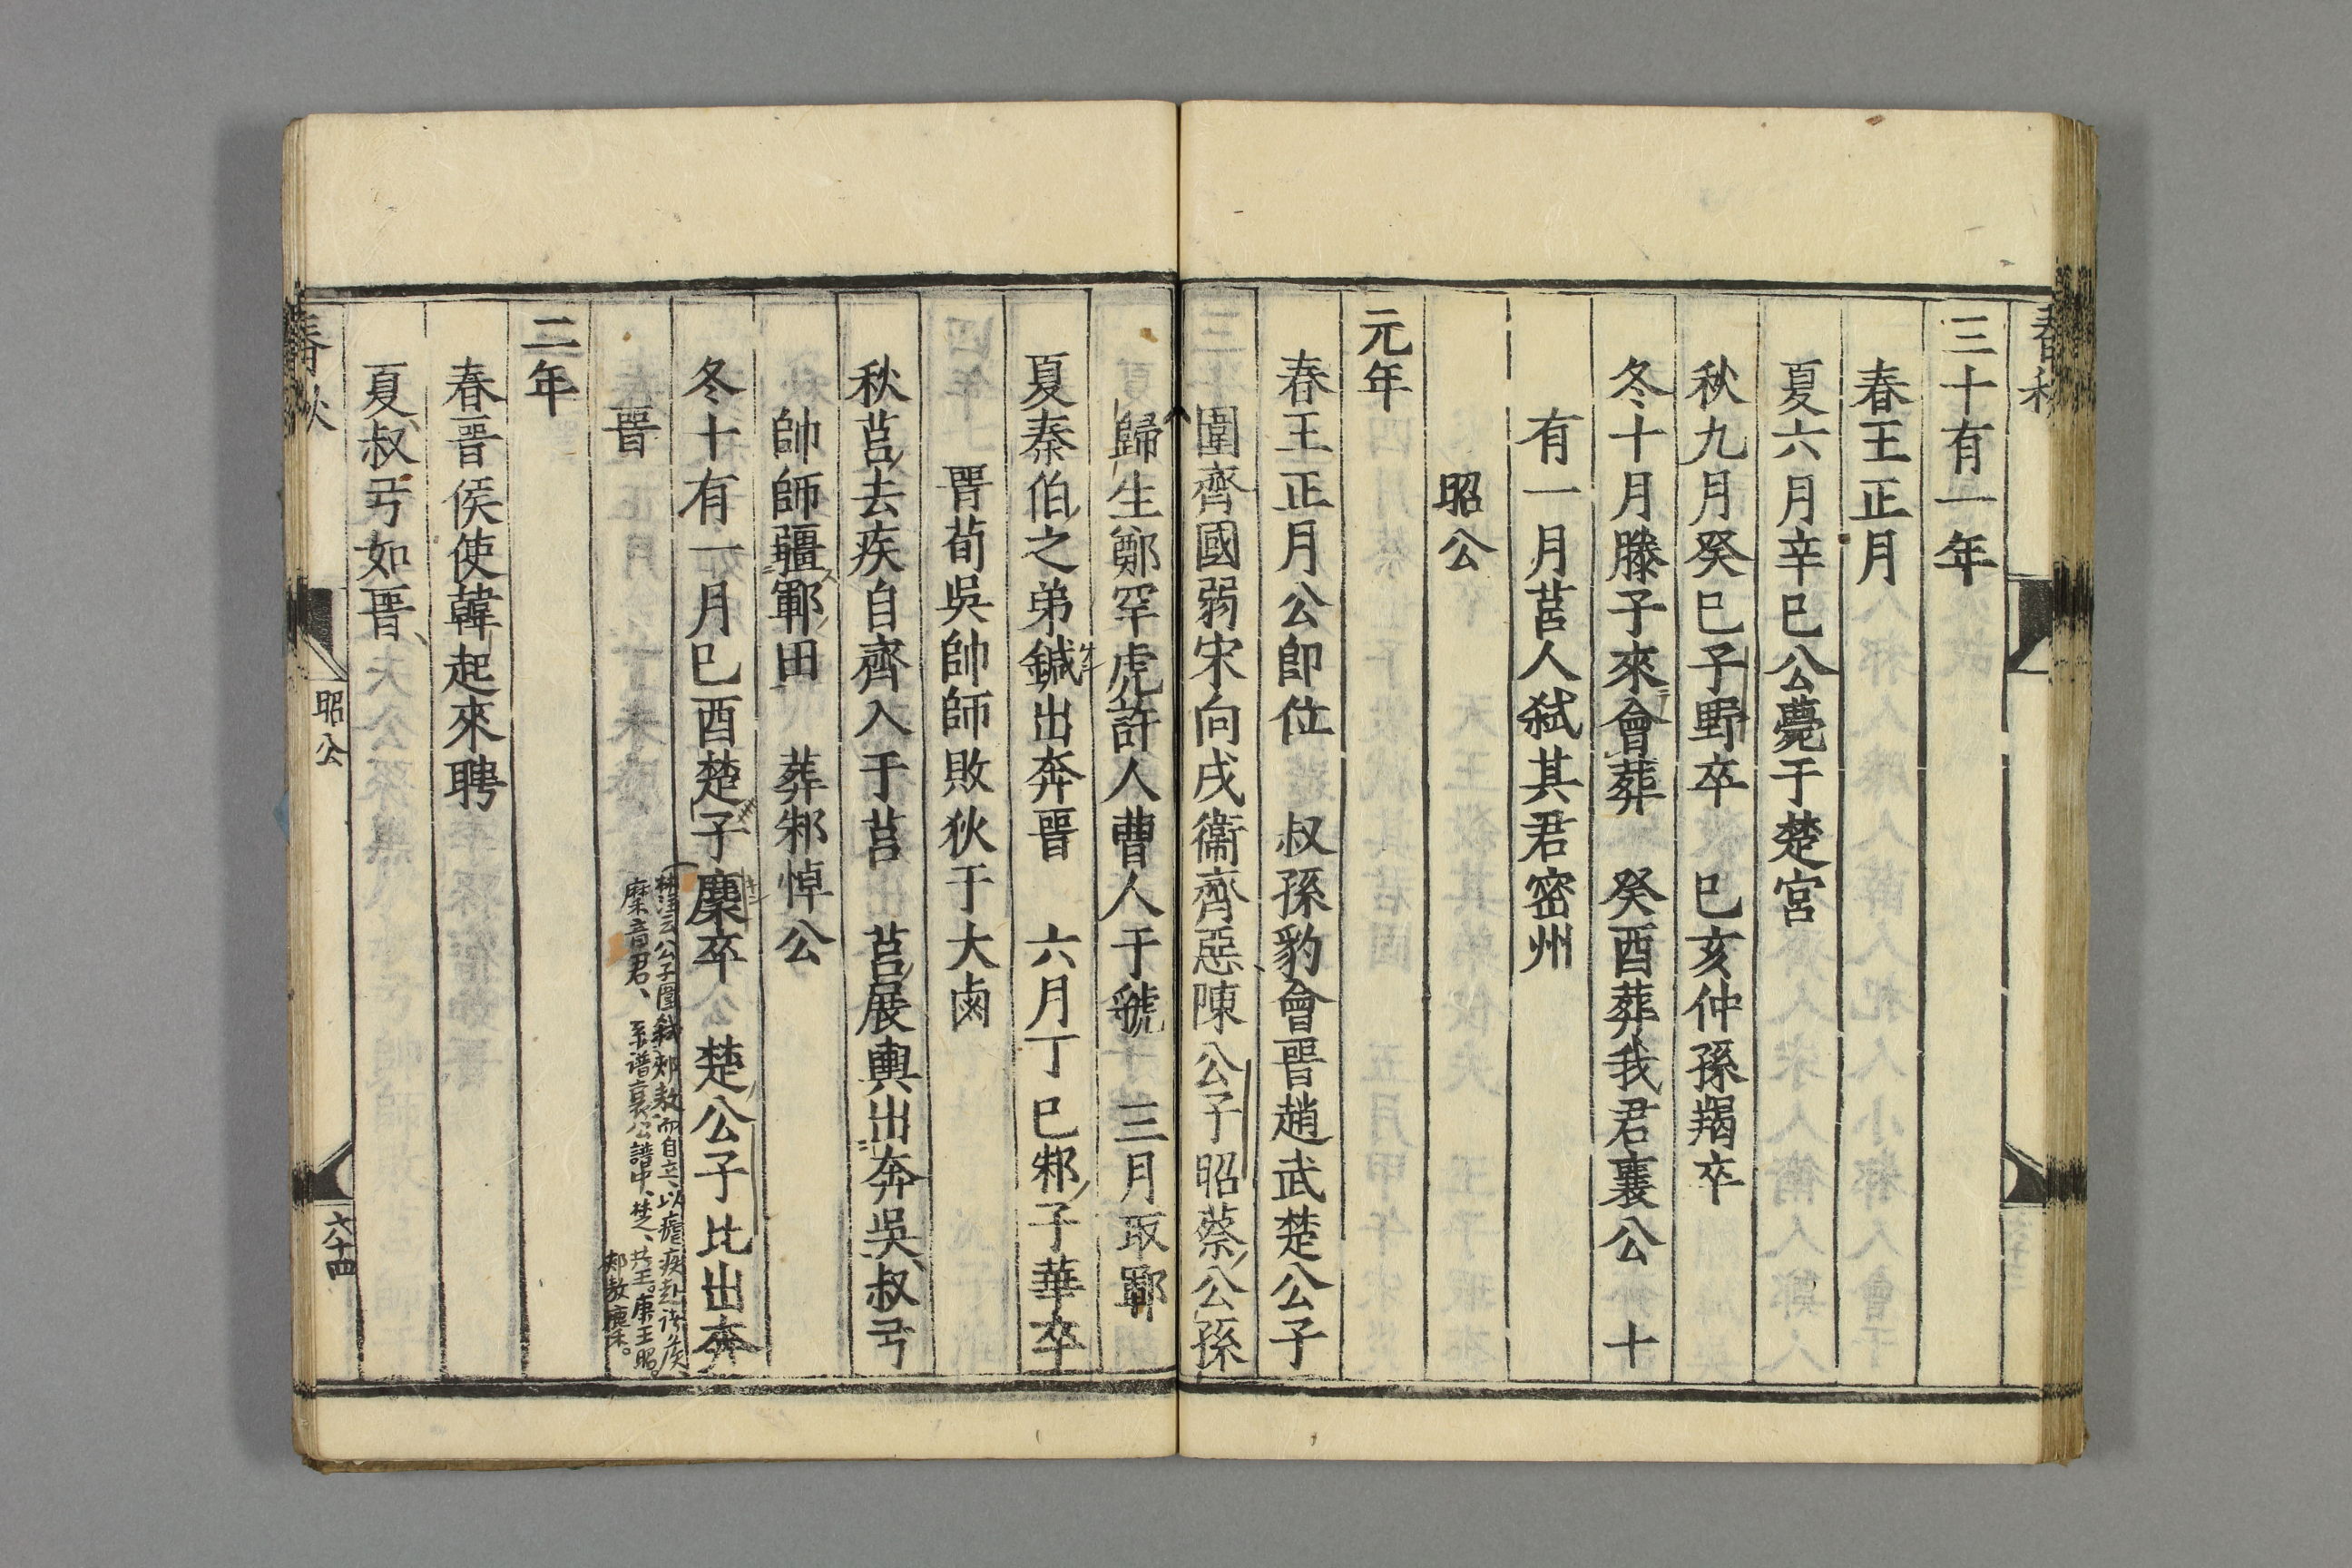 春秋
三十有一年
春王正月
夏六月辛巳公薨于楚宮
秋九月癸巳子野卒 已亥仲孫羯卒
冬十月滕子來會葬 癸酉葬我君襄公 十
有一月莒人弑其君密州
昭公
元年
春王正月公卽位 叔孫豹會晉趙武楚公子
圍齊國弱宋向戌衞齊惡陳公子昭蔡公孫
歸生鄭罕虎許人曹人于虢 三月取鄆
夏秦伯之弟鍼出奔晉 六月丁巳邾子華卒
晉荀吳帥師敗狄于大鹵
秋莒去疾自齊入于莒 莒展輿出奔吳叔弓
帥師疆鄆田 葬邾悼公
冬十有一月已酉楚子麇卒 楚公子比出奔
晉
公子圍弑郟敖而自立、以瘧疾赴諸侯、
麇音君、 系譜襄公譜中、楚、共王。康王昭。
郟敖麇。
二年
春晉侯使韓起來聘
夏叔弓如晉
春秋
昭公
六十四